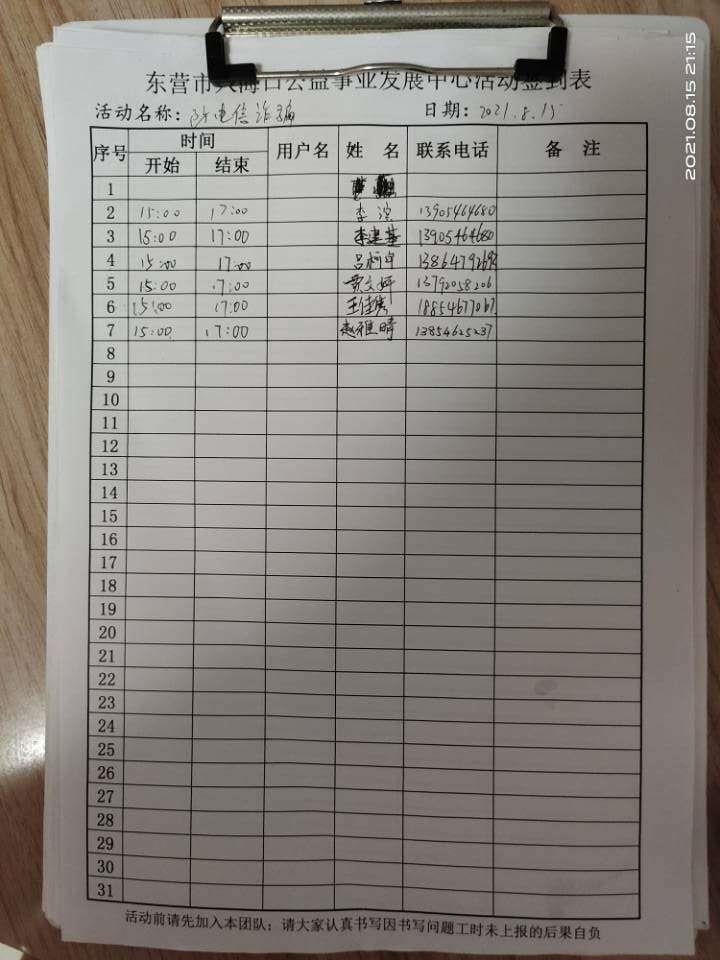 东营市入海口公益事业发展中心活动签到表
活动名称：防电信诈骗 日期：2021.8.15
序号 时间 用户名 姓名 联系电话 备注
开始 结束
1
2 15:00 17:00 李滨 13905464680
3 15:00 17:00 李建基 13905464680
4 15:00 17:00 1386479269
5 15:00 17:00 贾文婷 13792058206
6 15:00 17:00 王佳隽 18854677067
7 15:00 17:00 赵雅晴 13854625237
8
9
10
11
12
13
14
15
16
17
18
19
20
21
22
23
24
25
26
27
28
29
30
31
活动前请先加入本团队；请大家认真书写因书写问题工时未上报的后果自负
2021.08.15 21:15